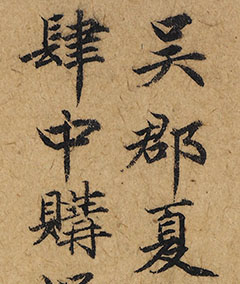 吴郡夏
肆中購